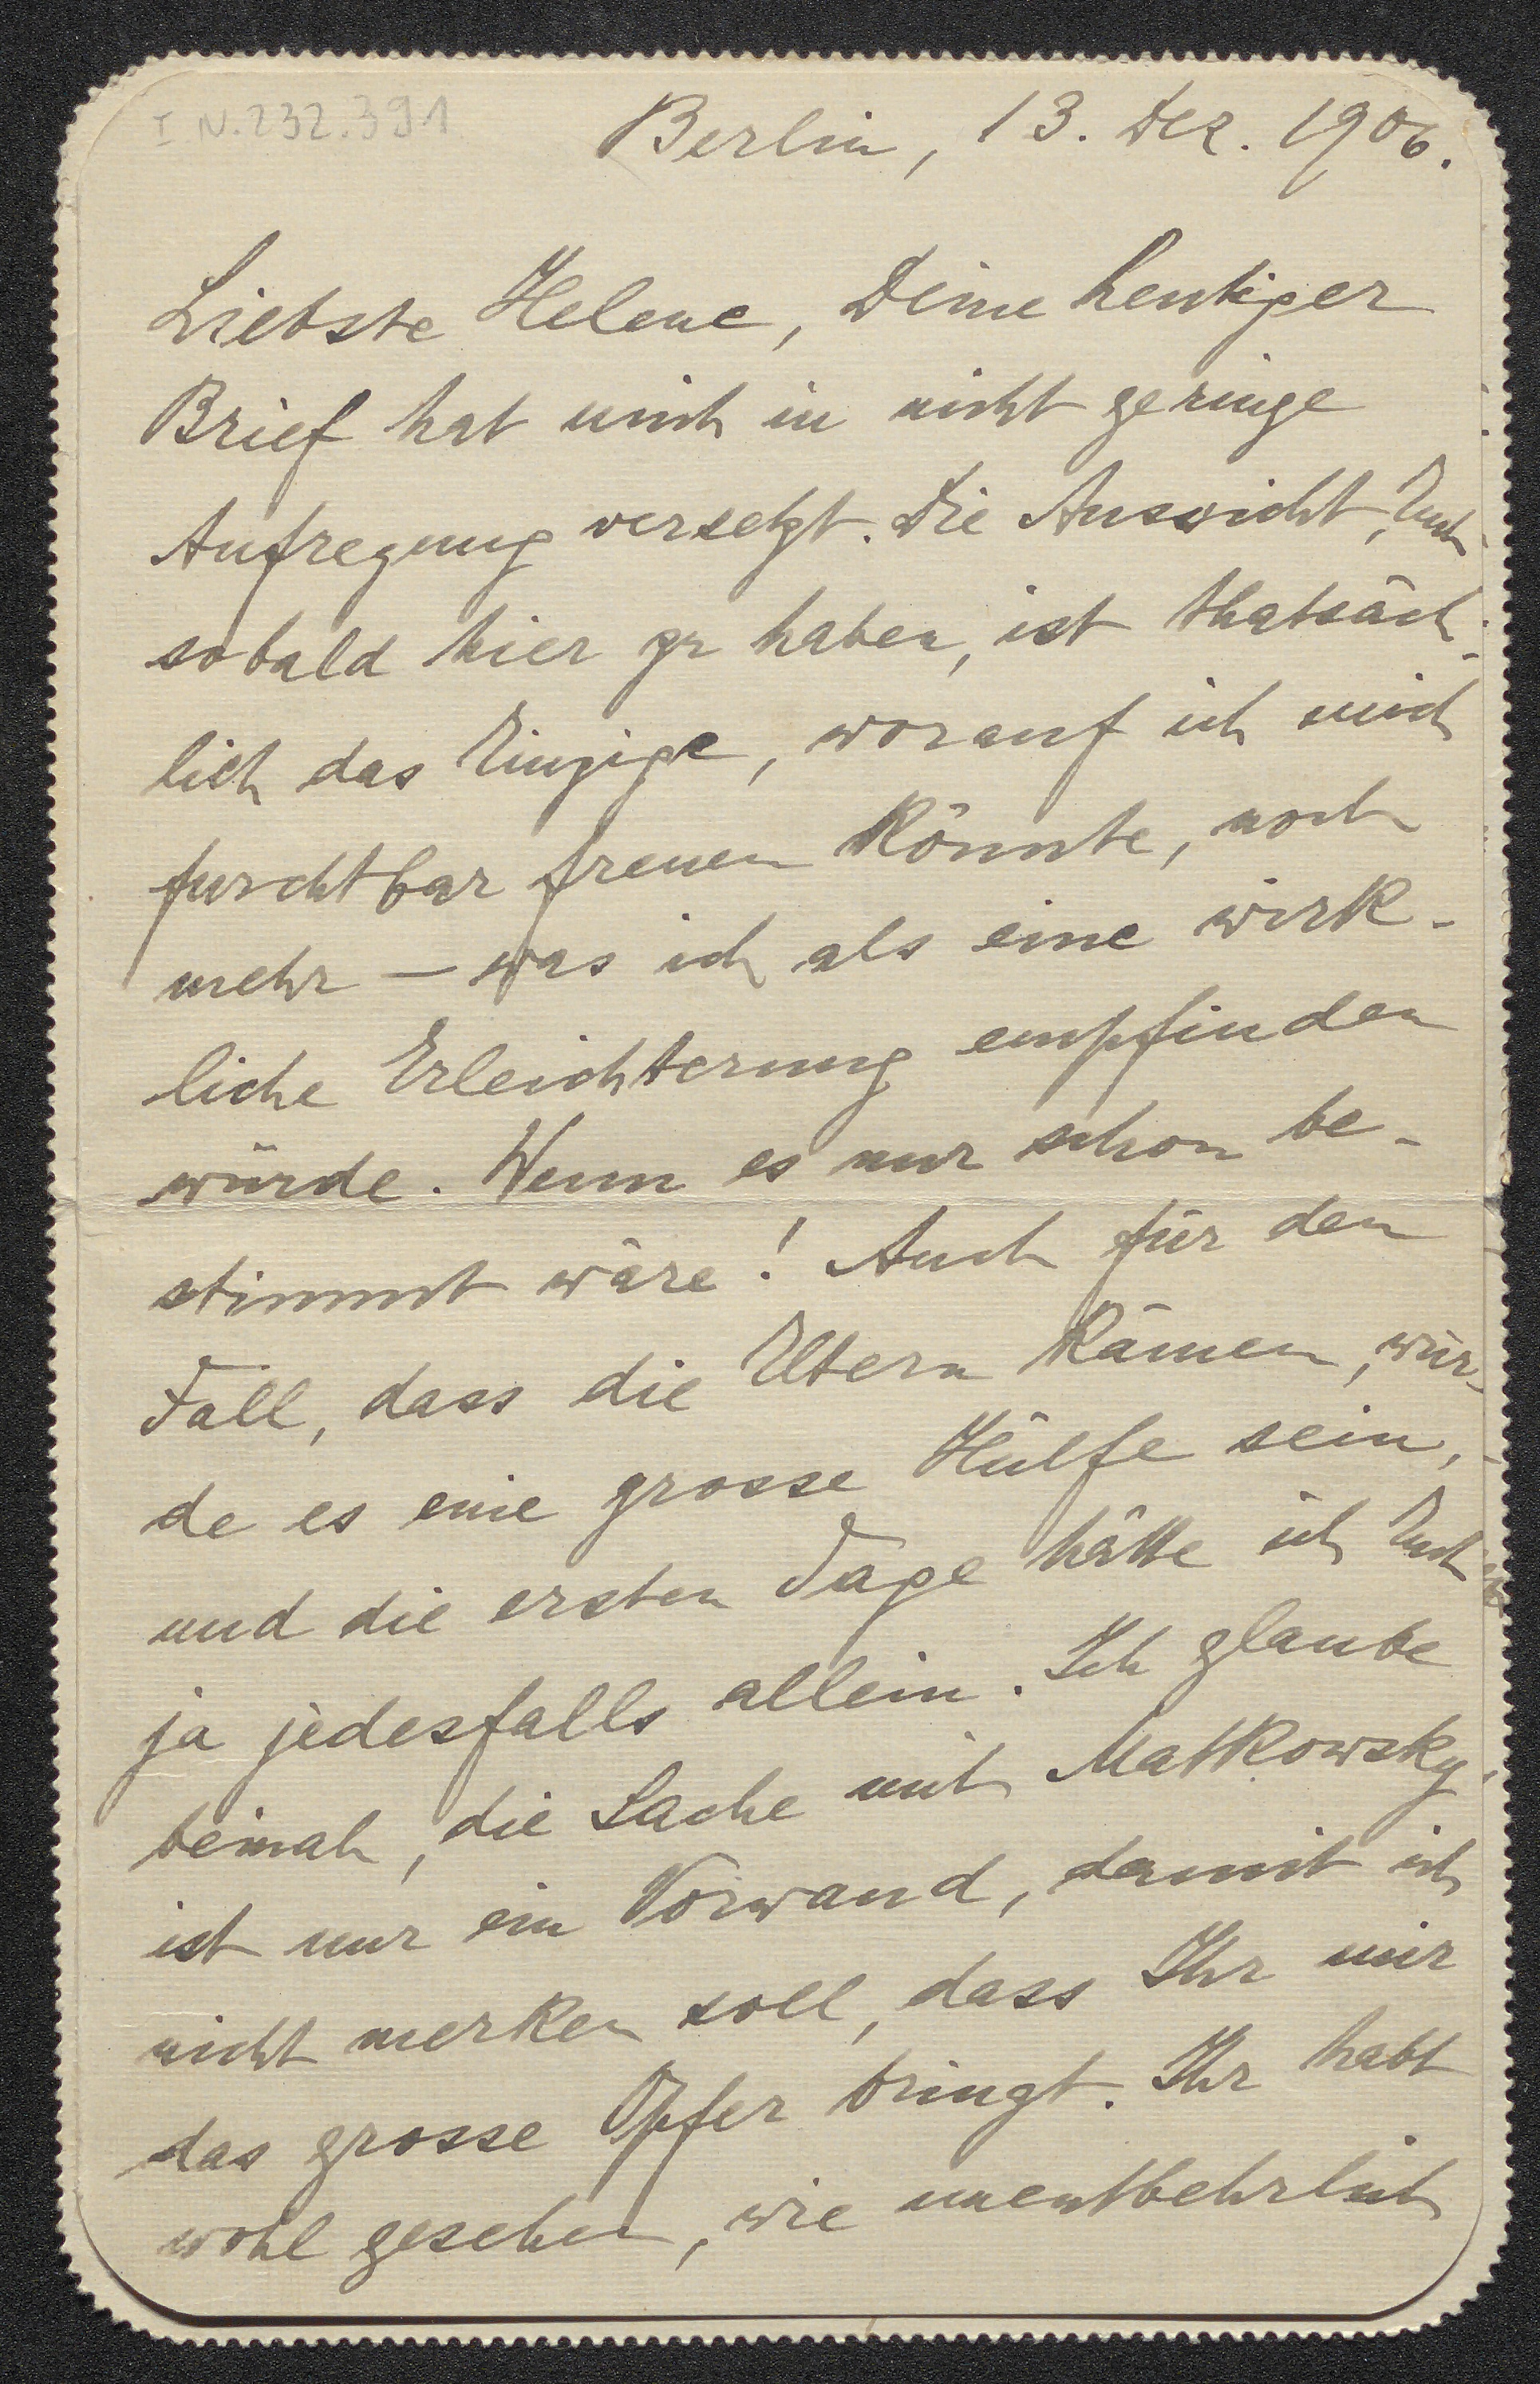 I N. 232.391
Berlin, 13. Dez. 1906.
Liebste Helene, Deine heutiger
Brief hat mich in nicht geringe
Aufregung versetzt. Die Aussicht, Euch
sobald hier zu haben, ist thatsäch-
lich das Einzige, worauf ich mich
furchtbar freuen könnte, noch
mehr – was ich als eine wirk-
liche Erleichterung empfinden
würde. Wenn es nur schon be-
stimmt wäre! Auch für den
Fall, dass die Eltern kämen, wür-
de es eine grosse Hülfe sein,
und die ersten Tage hätte ich Euch
ja jedesfalls allein. Ich glaube
beinah, die Sache mit Matkowsky
ist nur ein Vorwand, damit ich
nicht merken soll, dass Ihr mir
das grosse Opfer bringt. Ihr habt
wohl gesehen, wie unentbehrlich